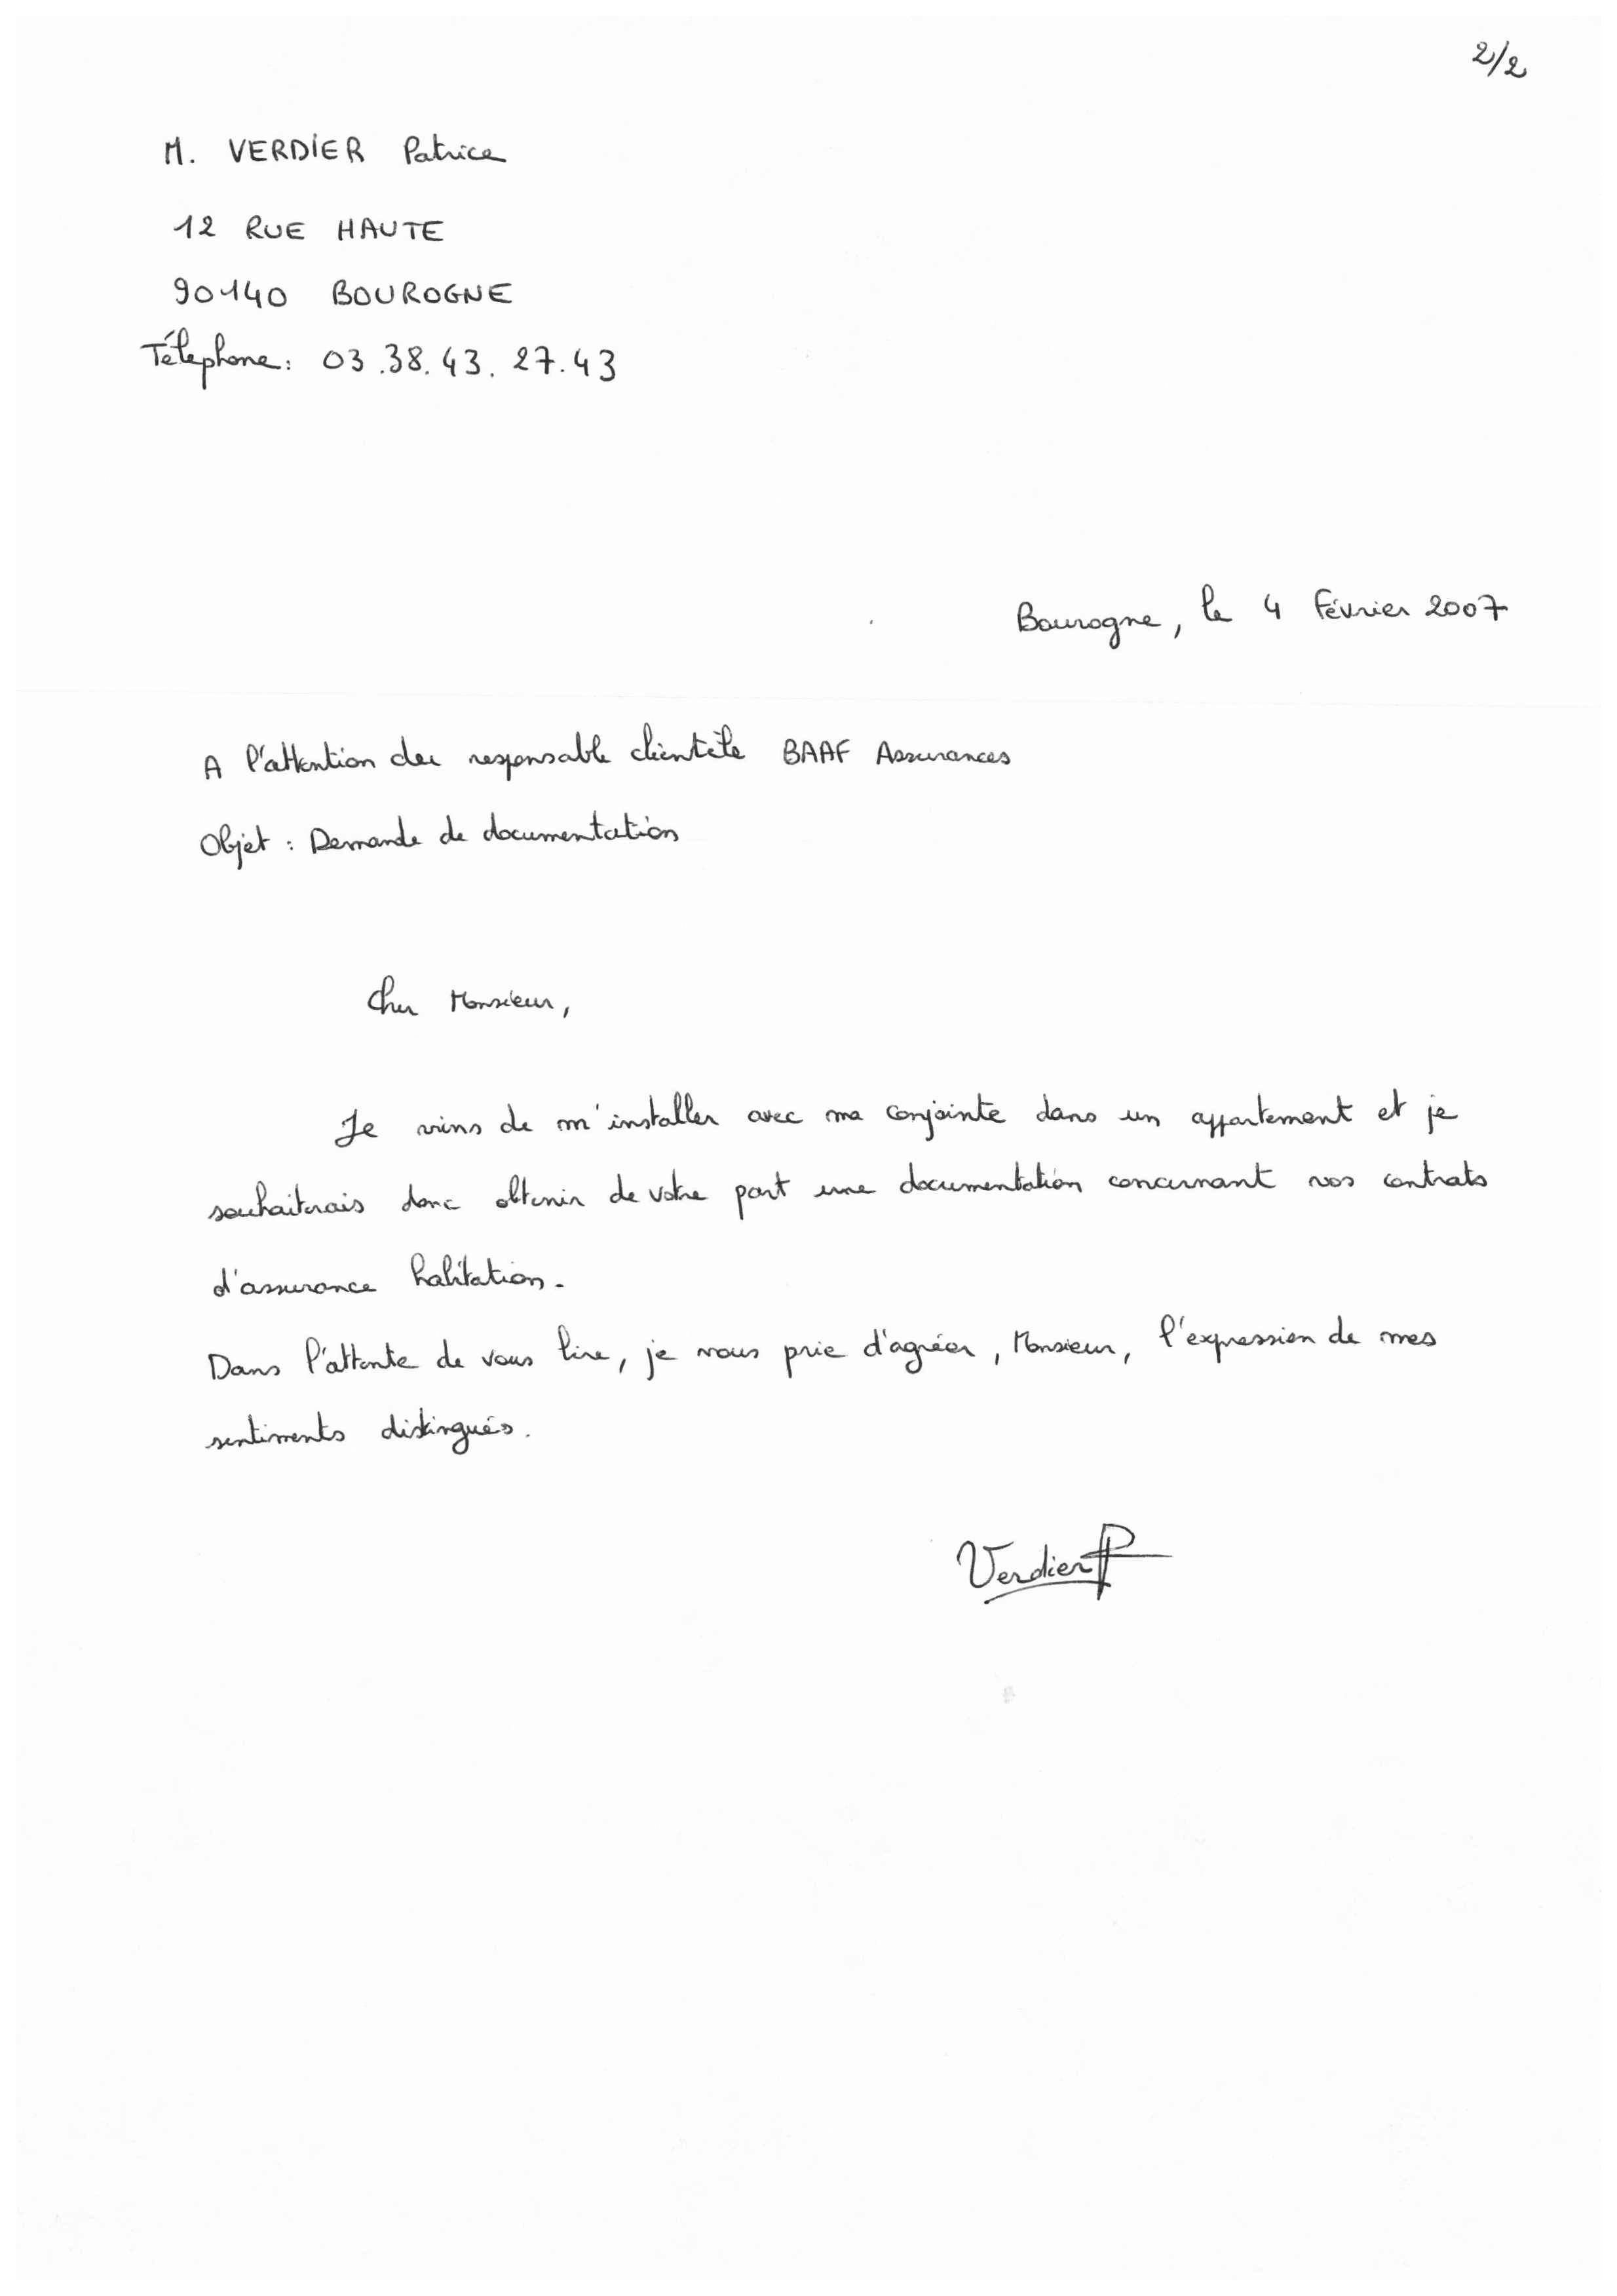 2/2
M. VERDIER Patrice
12 RUE HAUTE
90140 BOUROGNE
Téléphone: 03.38.43.27.43
Bourogne, le 4 Février 2007
A l'attention du responsable clientèle BAAF Assurances
Objet : Demande de documentation
Cher Monsieur,
Je viens de m'installer avec ma conjointe dans un appartement et je
souhaiterais donc obtenir de votre part une documentation concernant vos contrats
d'assurance habitation.
Dans l'attente de vous lire, je vous prie d'agréer, Monsieur, l'expression de mes
sentiments distingués.
Verdier P